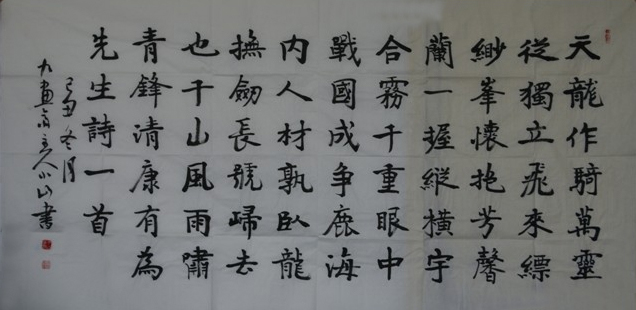 天龍作騎萬靈
從獨立飛來縹
緲峯懷抱芳馨
蘭一握縱橫宇
合霧千重眼中
戰國成争鹿海
内人材孰臥龍
撫劒長號歸去
也千山風雨嘯
青鋒清康有為
先生詩一首
己丑冬月
主人小山書